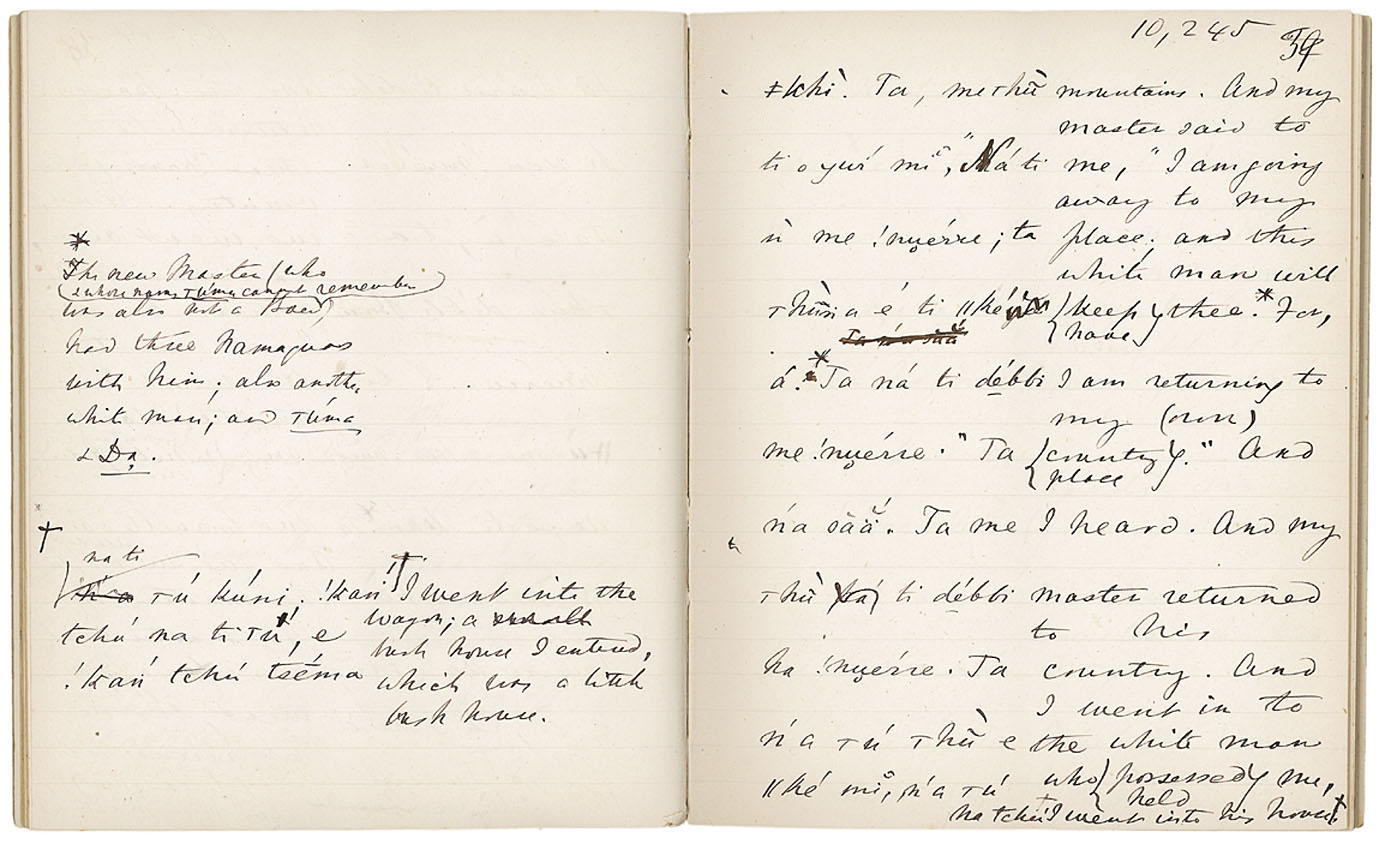 *
The new Master (who
& whose name, Tuma cannot remember
was also not a Boer)
had three Namaquas
with him; also another
white man; and Túma
& Da.
†
na ti
ń a tú kúni, !kań † I went into the
tchú na ti tú, e wagon; a small
bush house I entered,
!kań tchú tséma which was a little
bush house.
10,245
ǂkhì. Ta, me Thũ mountains. And my
master said to
ti o gwí mĭ, "Ná ti me, "I am going
away to my
ù me !nuérre; ta place; and this
white man will
é ti ǁké {keep} thee.* For,
{have}
Ta ná sãã
á.* Ta ná ti débbi I am returning to
my (own)
me !nuérre." Ta {country}." And
{place}
ń a sãã. Ta me I heard. And my
Thũ ti débbi master returned
to his
ha !nuérre. Ta country. And
I went in to
ń a tú Thũ e the white man
ǁké mĭ, ń a tú who {possessed} me,
{held}
ha tchú I went into his house.†